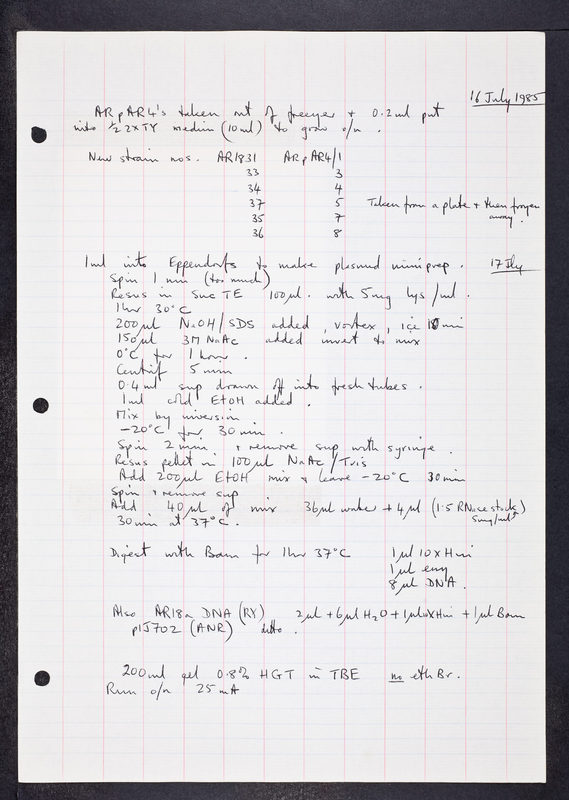 16 July 1985
ARpAR4's taken out of freezer + 0.2ml put
into ½ 2xTY medium (10ml) to grow o/n.
New strain nos. AR1831 ARpAR4/1
33 3
34 4
37 5 Taken from a plate + then frozen
35 7 away.
36 8
1ml into Eppendorfs to make plasmid miniprep. 17 Jly
Spin 1 min (too much)
Resus in Suc TE 100µl. with 5mg lys/ml.
1hr 30°C
200µl NaOH/SDS added, vortex, ice 10min
150µl 3M NaAc added invert to mix
0°C for 1 hour.
Centrif 5 min
0.4ml sup drawn off into fresh tubes.
1ml cold EtOH added.
Mix by inversion
-20°C for 30 min.
Spin 2 min. + remove sup with syringe.
Resus pellet in 100µl NaAc/Tris
Add 200µl EtOH mix + leave -20°C 30min
Spin + remove sup
Add 40µl of mix 36µl water + 4µl (1.5 RNase stock)
30 min at 37°C. 5mg/ml
Digest with Bam for 1hr 37°C 1µl 10xHin
1µl enz
8µl DNA.
Also AR18a DNA (RY) 2µl + 6µl H2O + 1µl 10xHin + 1µl Bam
pIJ702 (ANR) ditto.
200ml gel 0.8% HGT in TBE no ethBr.
Run o/n 25mA